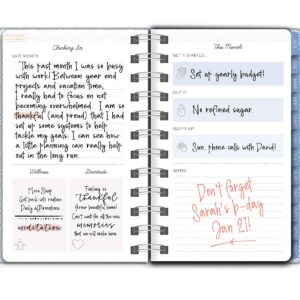 Checking In
LAST MONTH
This past month I was so busy
with work! Between year end
projects and vacation time,
I really had to focus on not
becoming overwhelmed. I am so
thankful (and proud) that I had
set up some systems to help
tackle my goals. I can see how
a little planning can really help
out in the long run.
Wellness
More Sleep
Get back into routine
Daily affirmations
meditation
Gratitude
Feeling so
thankful
for our beautiful home!
Can't wait for all the new
memories
that we will make here
This Month
GET IT STARTED...
Set up yearly budget!
CUT IT
No refined sugar
KEEP IT UP!
Sun. phone calls with David!
NOTES
Don't forget
Sarah's b-day
Jan 21!